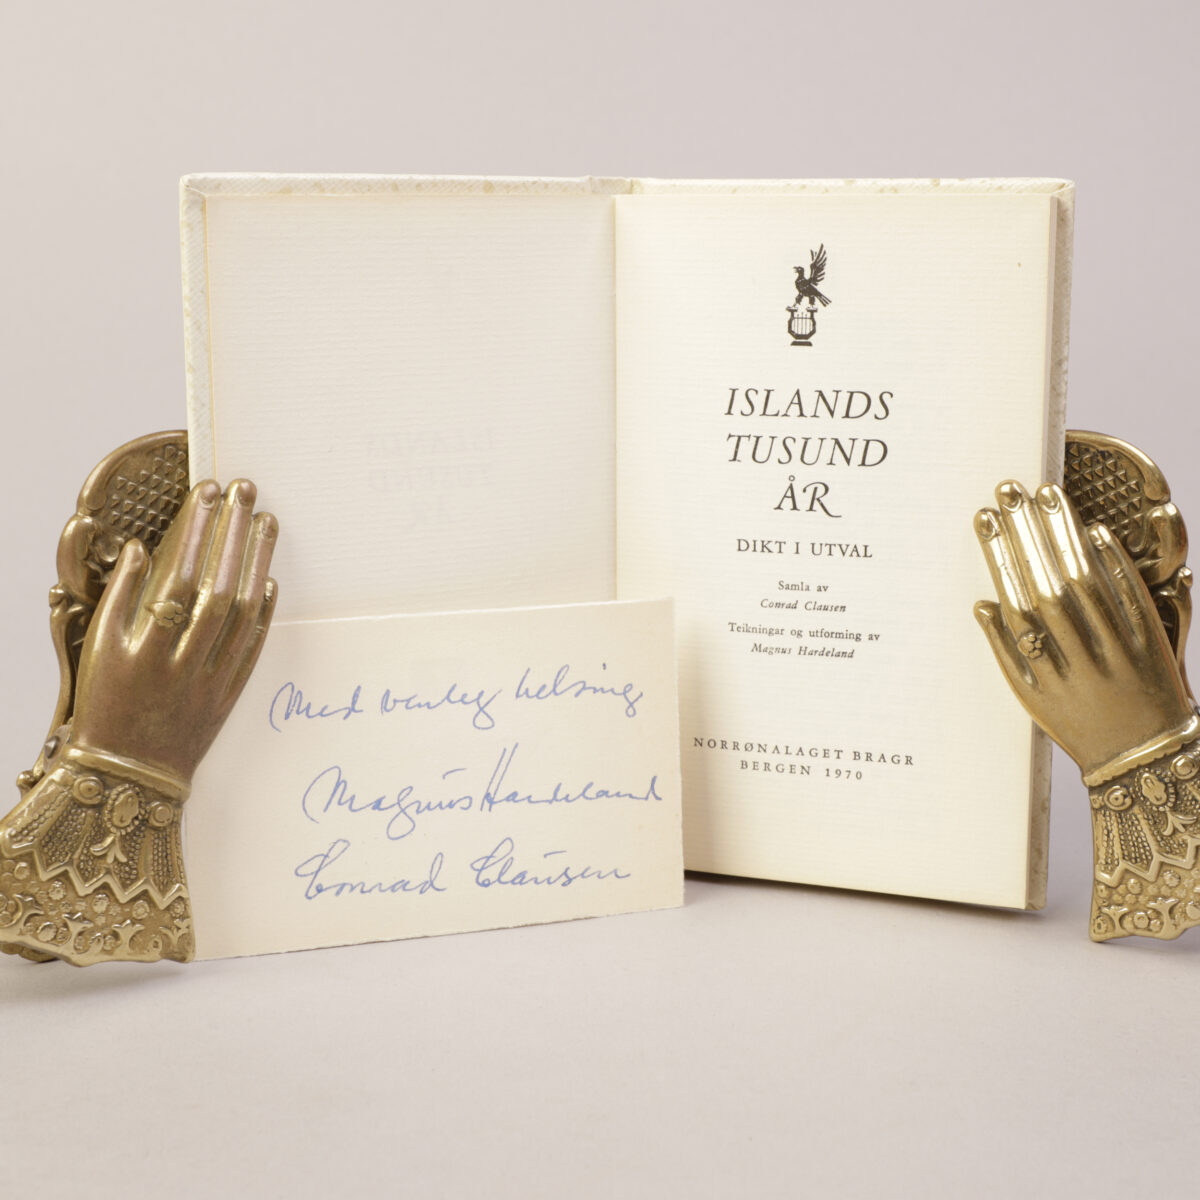 ISLANDS
TUSUND
ÅR
DIKT I UTVAL
Samla av
Conrad Clausen
Teikningar og utforming av
Magnus Hardeland
NORRØNALAGET BRAGR
BERGEN 1970
Med venleg helsing
Magnus Hardeland
Conrad Clausen